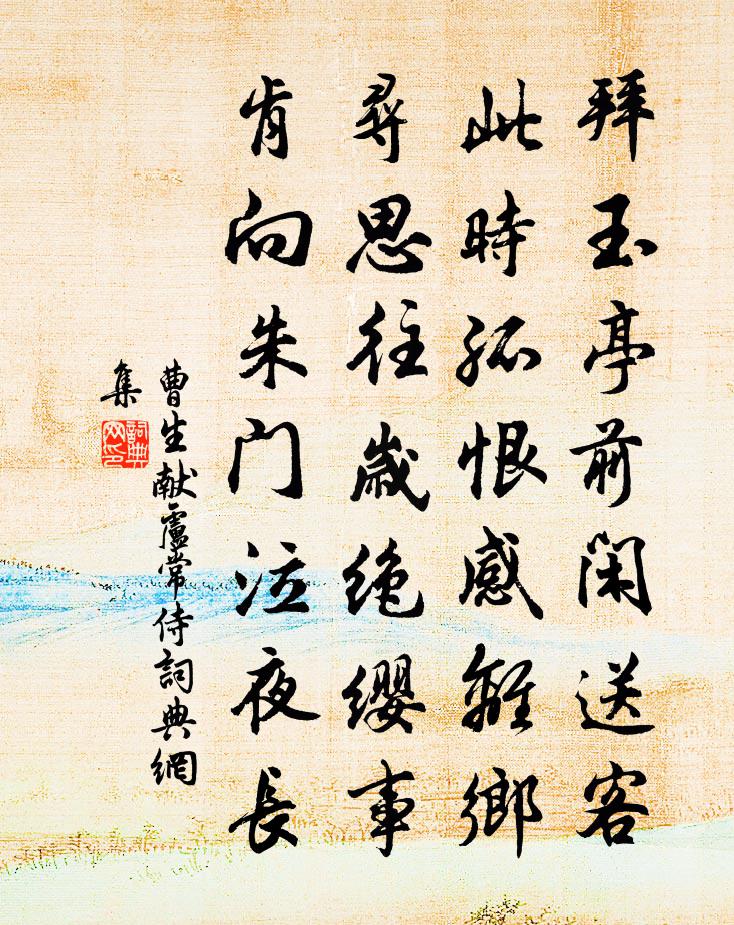 拜玉亭前闲送客
此時孤恨感離鄉
尋思往歲絶纓事
肯向朱门泣夜長
曹生献盧常侍詞典網
集
詞典
网印